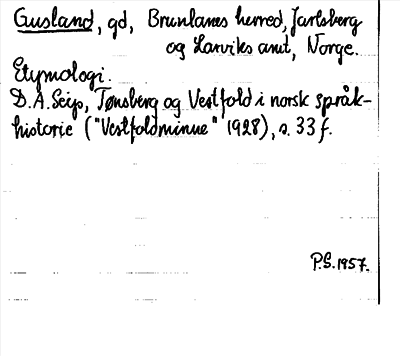 Gusland, gd, Brunlanes herred, Jarlsberg
og Larviks amt, Norge.
Etymologi.
D. A. Seip, Tønsberg og Vestfold i norsk språk-
historie ("Vestfoldminne" 1928), s. 33 f.
P.S. 1957.